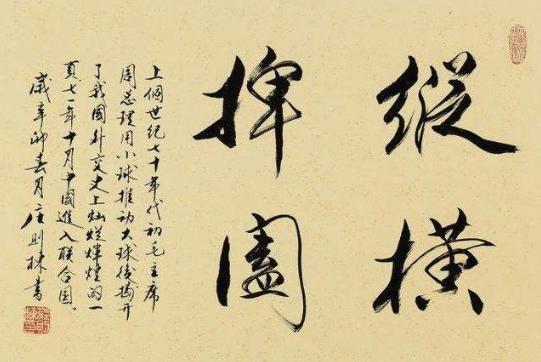 縱橫
捭闔
上個世紀七十年代初毛主席
周总理用小球推动大球後揭开
了我國外交史上灿烂輝煌的一
頁七一年十月中國進入联合国.
歲辛卯春月庄则棟書